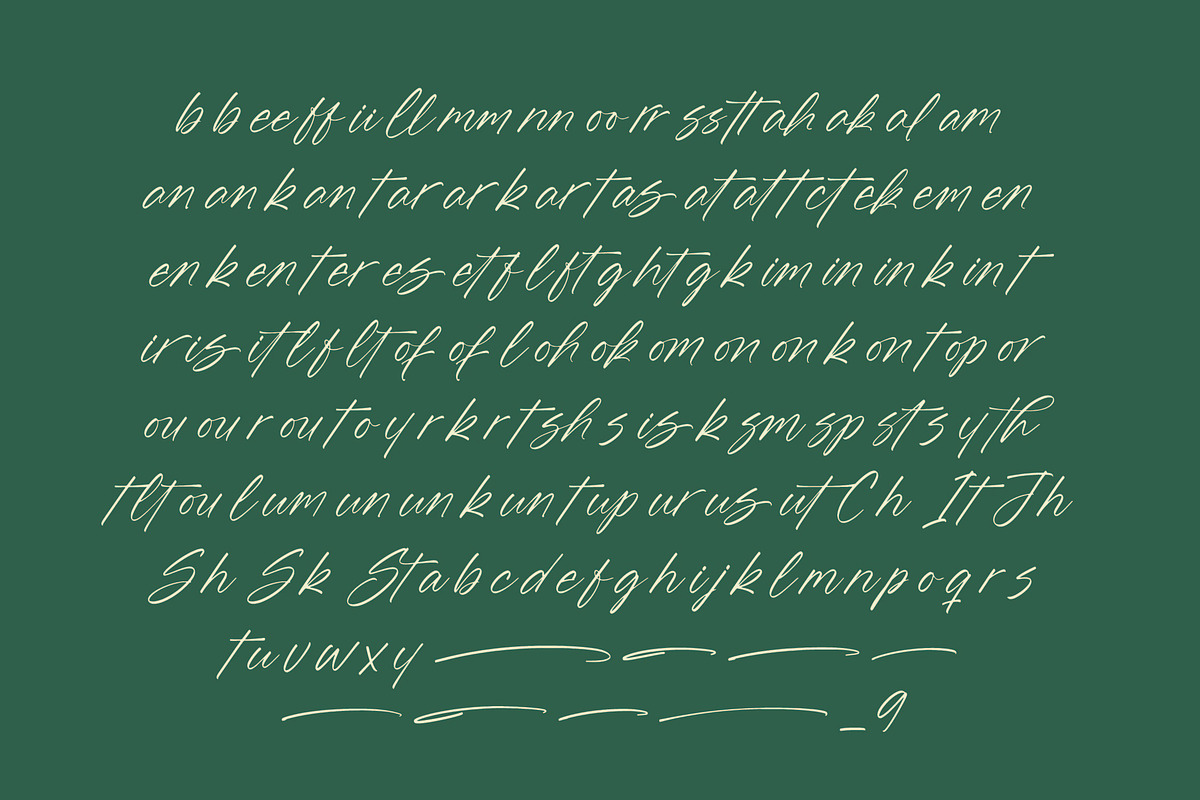 bb ee ff ii ll mm nn oo rr ss tt ah ak al am
an ank ant ar ark art as at att ct ek em en
enk ent er es et fl ft g ht gk im in ink int
ir is it lf lt of ofl oh ok om on onk ont op or
ou our out oy rk rt sh s is k sm sp st sy th
tl tt oul um un unk unt up ur us ut Ch It Jh
Sh Sk St a b c d e f g h i j k l m n p o q r s
t u v w x y
_ 9